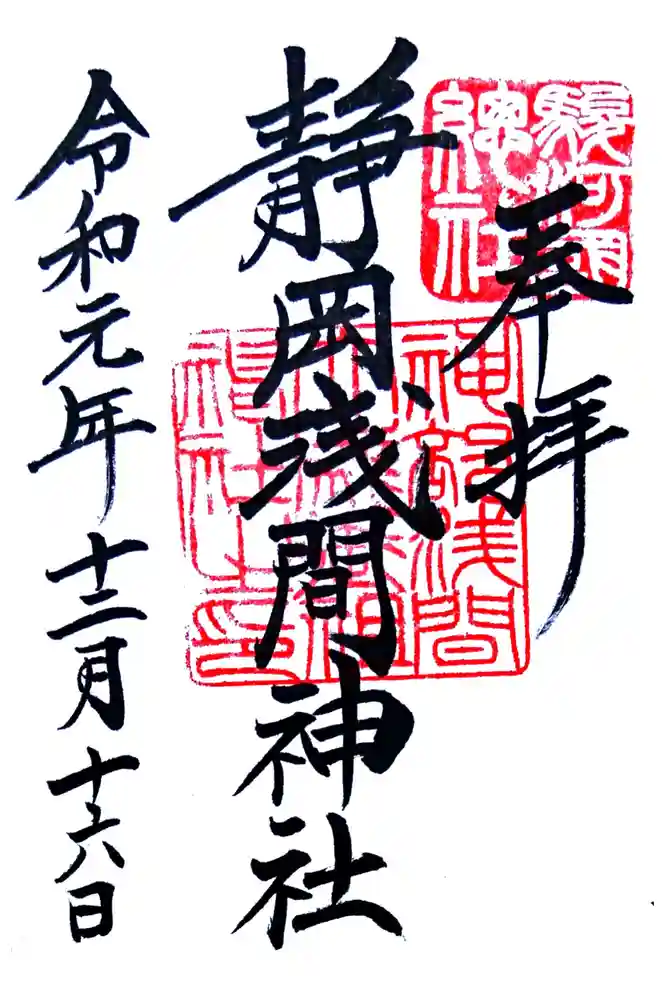 駿河國
總社
奉拝
神部浅間
神社之印
静岡浅間神社
令和元年十二月十六日